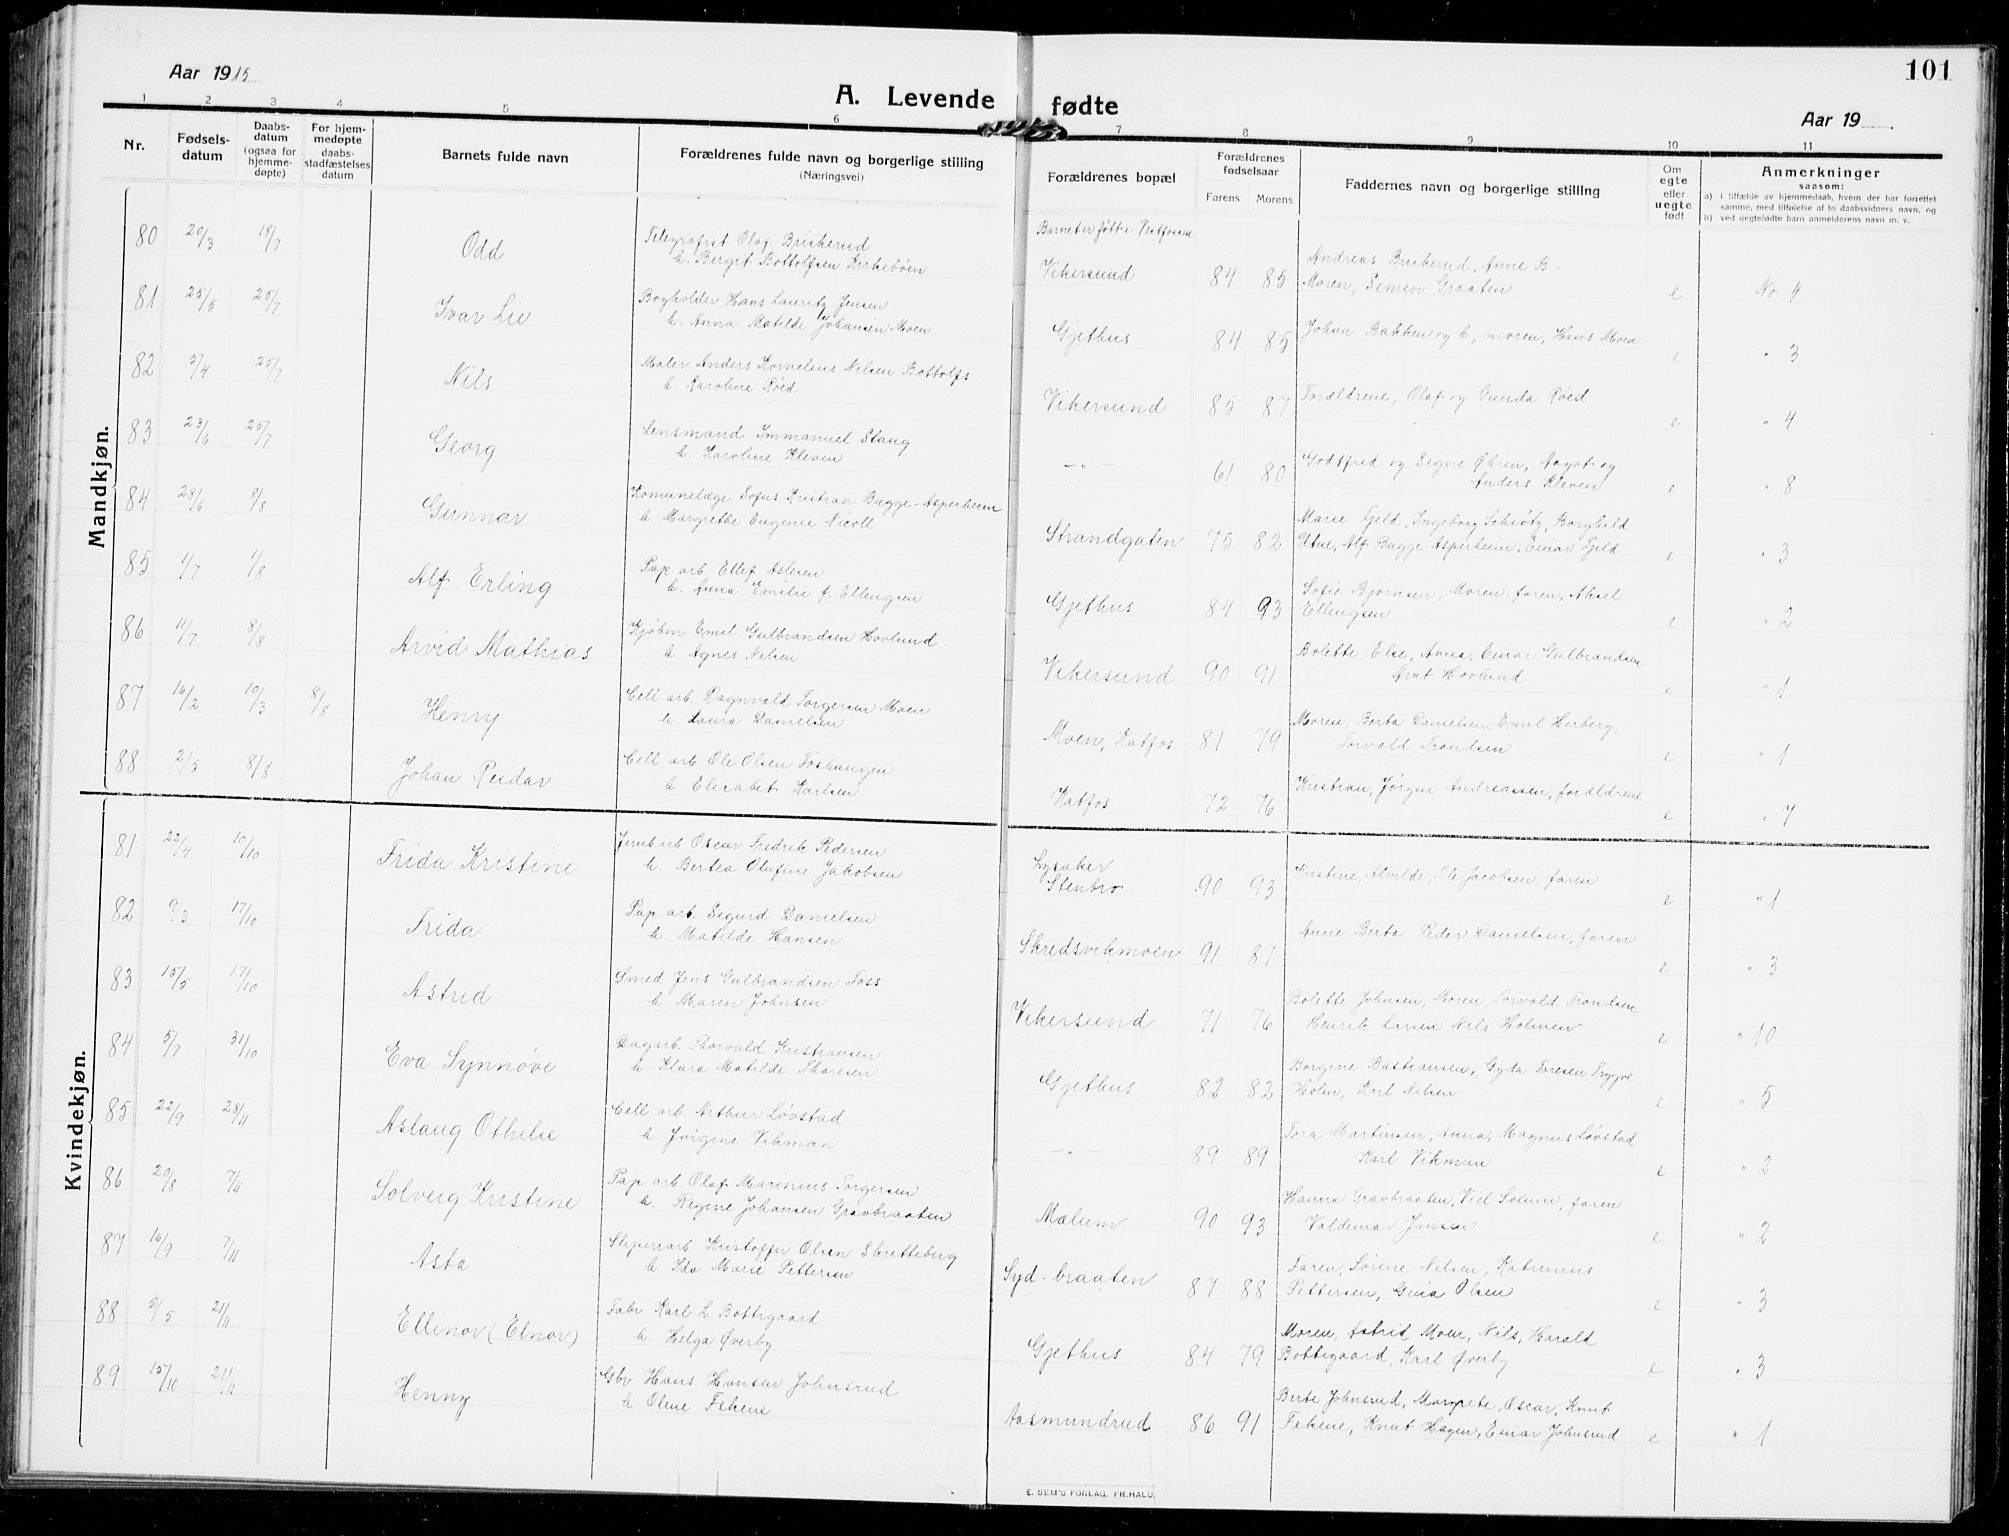 Aar 1915
101
A. Levende fødte
Aar 19
1 2 3 4 5 6 7 8 9 10 11
Nr.
Fødsels-
datum
Daabs-
datum
(ogsaa for
hjemme-
døpte)
For hjem-
medøpte
daabs-
stadfæstelses
datum
Barnets fulde navn
Forældrenes fulde navn og borgerlige stilling
(Næringsvei)
Forældrenes bopæl
Forældrenes
fødselsaar
Farens Morens
Faddernes navn og borgerlige stilling
Om
egte
eller
uegte
født
Anmerkninger
saasom:
a) i tilfælde av hjemmedaab, hvem der har forrettet
samme, med tilføielse af to daabsvidners navn, og
b) ved uegtefødte barn anmelderens navn m. v.
Mandkjøn.
80 20/3 18/7 Odd
Telegrafist Olaf Briskerud
h. Birgit Bottolfsen Kirkebøen
Barnet er født i Vestfossen
Vikersund 84 85
Andreas Briskerud, Anne B-
Moren, Simen Graaten e No 4
81 25/5 25/7 Ivar Lie
Bogholder Hans Lauritz Jensen
h. Anna Matilde Johansen Moen
Gjethus 84 85
Johan Bakken og h, moren, Hans Moen e " 3
82 5/4 25/7 Nils
Maler Anders Kornelius Nilsen Bottolfs
h Karoline Røed
Vikersund 85 87
Forældrene, Olaf og Gunda Røed e " 4
83 23/6 25/7 Georg
Lensmand Immanuel Stang
h. Karoline Kleven
-"- 61 80
Godtfred og Signe Øhren, Aagot og
Anders Kleven e " 8
84 28/6 8/8 Gunnar
Komunelæge Sofus Kristian Bagge-Asperheim
h. Margrethe Eugenie Nicoll
Strandgaten 75 82
Marie Fjeld, Ingeborg Schiøtz, Borghild
Utne, Alf Bagge-Asperheim, Einar Fjeld e " 3
85 1/7 1/8 Alf Erling
Pap. arb. Ellef Aslesen
h. Anna Emilie f. Ellengsen
Gjethus 84 93
Sofie Bjørnsen, Moren, faren, Aksel
Ellengsen e " 2
86 11/7 8/8 Arvid Mathias
Kjøbm Emil Gulbrandsen Hovlund
h. Agnes Nilsen
Vikersund 90 91
Bolette, Else, Anna, Einar Gulbrandsen
Hovlund e " 1
87 16/2 10/3 8/8 Henry
Cell arb. Ragnvald Torgersen Moen
h. Laura Danielsen
Moen, Katfos 81 79
Morese, Berta Danielsen, Emil Herberg,
Torvald Trondsen e " 1
88 2/5 8/8 Johan Reidar
Cell arb Ole Olsen Foshaugen
h Elisabet Karlsen
Katfos 72 76
Kristian, Jørgen Andreassen, forældrene e " 7
Kvindekjøn.
81 22/4 10/10 Frida Kristine
Jernb arb Oscar Fredrik Pedersen
h. Bertea Olafine Jakobsen
Lysaker
Stenbro 90 93
Kristine, Alvilde, Ole Jacobsen, faren e " 1
82 9/3 17/10 Frida
Pap. arb. Sigurd Danielsen
h. Matilde Hansen
Skredsvikmoen 91 87
Anne Berta Peder Danielsen, faren e " 3
83 15/5 17/10 Astrid
Smed Jens Gulbrandsen Foss
h. Maren Johnsen
Vikersund 71 76
Bolette Johnsen, Moren, Torvald Trondsen
Henrik Larsen, Nils Holmen e " 10
84 5/7 31/10 Eva Synnøve
Dagarb. Thorvald Kristiansen
h. Klara Matilde Thoresen
Gjethus 82 82
Borgine Bastiansen, Gyda Toresen, Trygve
Holm, Karl Nilsen e " 5
85 22/9 28/11 Aslaug Othilie
Cell. arb. Arthur Løvstad
h. Jørgine Vikman
-"- 89 89
Tora Martinsen, Anna, Magnus Løvstad
Karl Vikman e " 2
86 20/8 7/4 Solveig Kristine
Pap. arb Olaf Marinius Torgersen
h. Regine Johansen Gravbraaten
Mælum 90 93
Hanna Gravbraaten, Viel Solum, faren
Valdemar Jansen e " 2
87 16/9 7/11 Asta
Sliperiarb Kristoffer Olsen Skretteberg
h Ida Marie Pettersen
Syd-braaten 87 88
Faren, Sørine Nilsen, Katrinus
Pettersen, Gina Olsen e " 3
88 5/5 21/11 Ellinor (Elnor)
Fabr Karl L Bottigaard
h. Helga Øverby
Gjethus 84 79
Moren, Astrid Moen, Nils, Harald
Bottigaard, Karl Øverby e " 3
89 15/10 21/11 Henny
Gbr. Hans Hansen Johnsrud
h Oline Fekene
Aasmundrud 86 91
Berte Johnsrud, Margrete, Oscar, Knut
Fekene, Knut Hagen, Einar Johnsrud e " 1
E. SEM'S FORLAG, FR.HALD.